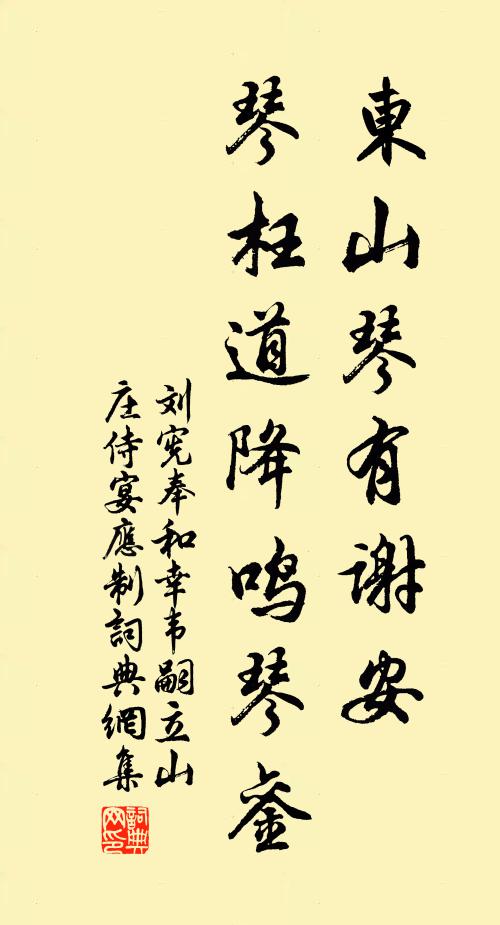 東山琴有謝安
琴枉道降鸣琴銮
刘宪奉和幸韦嗣立山
庄侍宴應制詞典網集
詞典网印